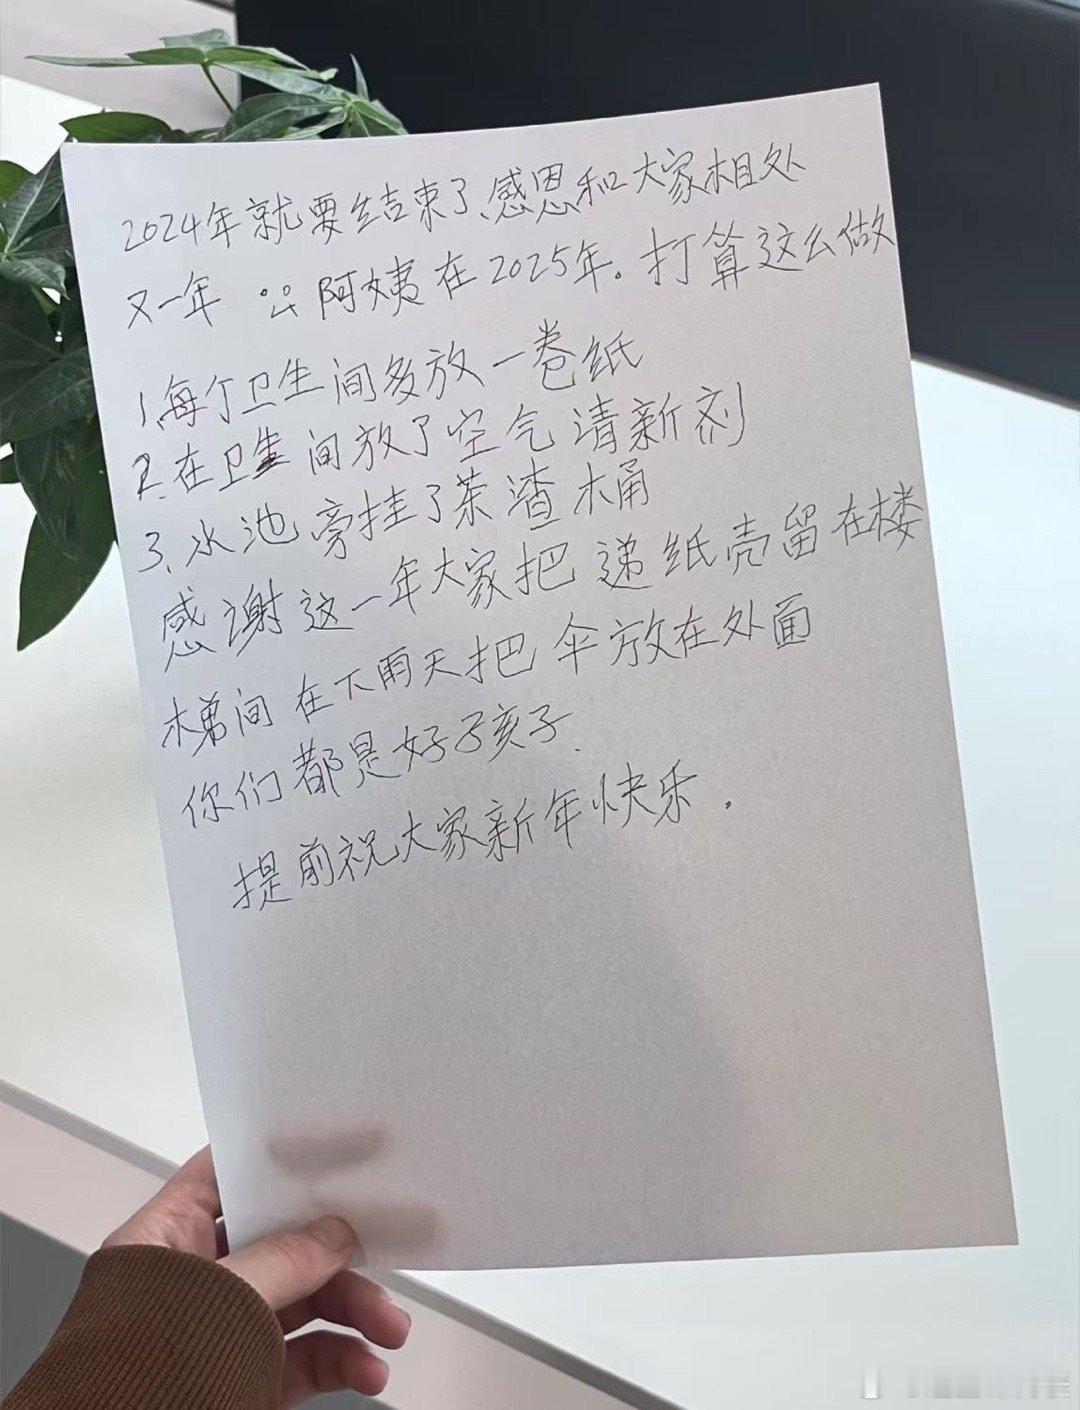 2024年就要结束了、感恩和大家相处
又一年 阿姨在2025年。打算这么做
1、每个卫生间多放一卷纸
2、在卫生间放了空气清新剂
3、水池旁挂了茶渣桶
感谢这一年大家把递纸壳留在楼
梯间在下雨天把伞放在外面
你们都是好孩子.
提前祝大家新年快乐.